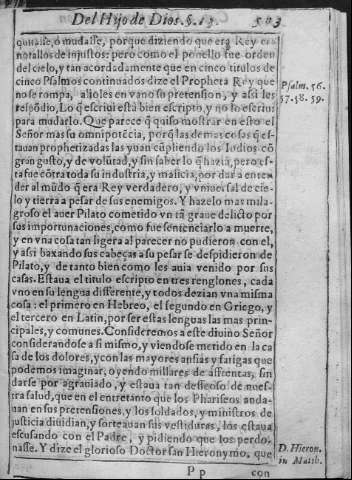 Del Hijo de Dios. §. 13. 503
quitasse, ó mudasse, porque diziendo que era Rey era
notallos de injustos: pero como el ponello fue orden
del cielo, y tan acordadamente que en cinco titulos de
cinco Psalmos continuados dize el Propheta Rey que
no se rompa, alioles en vano su pretension, y assi les
respõdio, Lo q̃ escriui està bien escripto, y no lo escriui
para mudarlo. Que parece q̃ quiso mostrar en esto el
Señor mas su omnipotẽcia, porq̃ las demas cosas q̃ es-
tauan prophetizadas las yuan cũpliendo los Iudios cõ
gran gusto, y de volũtad, y sin saber lo q̃ haziã, pero es-
ta fue cõtra toda su industria, y malicia, por dar a enten-
der al mũdo q̃ era Rey verdadero, y vniuersal de cie-
lo y tierra a pesar de sus enemigos. Y hazelo mas mila-
groso el auer Pilato cometido vn tã graue delicto por
sus importunaciones, como fue sentenciarlo a muerte,
y en vna cosa tan ligera al parecer no pudieron con el,
y assi baxando sus cabeças a su pesar se despidieron de
Pilato, y de tanto bien como les auia venido por sus
casas. Estaua el titulo escripto en tres renglones, cada
vno en su lengua differente, y todos dezian vna misma
cosa: el primero en Hebreo, el segundo en Griego, y
el tercero en Latin, por ser estas lenguas las mas prin-
cipales, y comunes. Consideremos a este diuino Señor
considerandose a si mismo, y viendose metido en la ca
sa de los dolores, y con las mayores ansias y fatigas que
podemos imaginar, oyendo millares de affrentas, sin
darse por agrauiado, y estaua tan desseoso de nues-
tra salud, que en el entretanto que los Phariseos anda-
uan en sus pretensiones, y los soldados, y ministros de
justicia diuidian, y sorteauan sus vestiduras, los estaua
escusando con el Padre, y pidiendo que los perdo-
nasse. Y dize el glorioso Doctor san Hieronymo, que
P p con
Psalm. 56.
57. 58. 59.
D. Hieron.
in Matth.